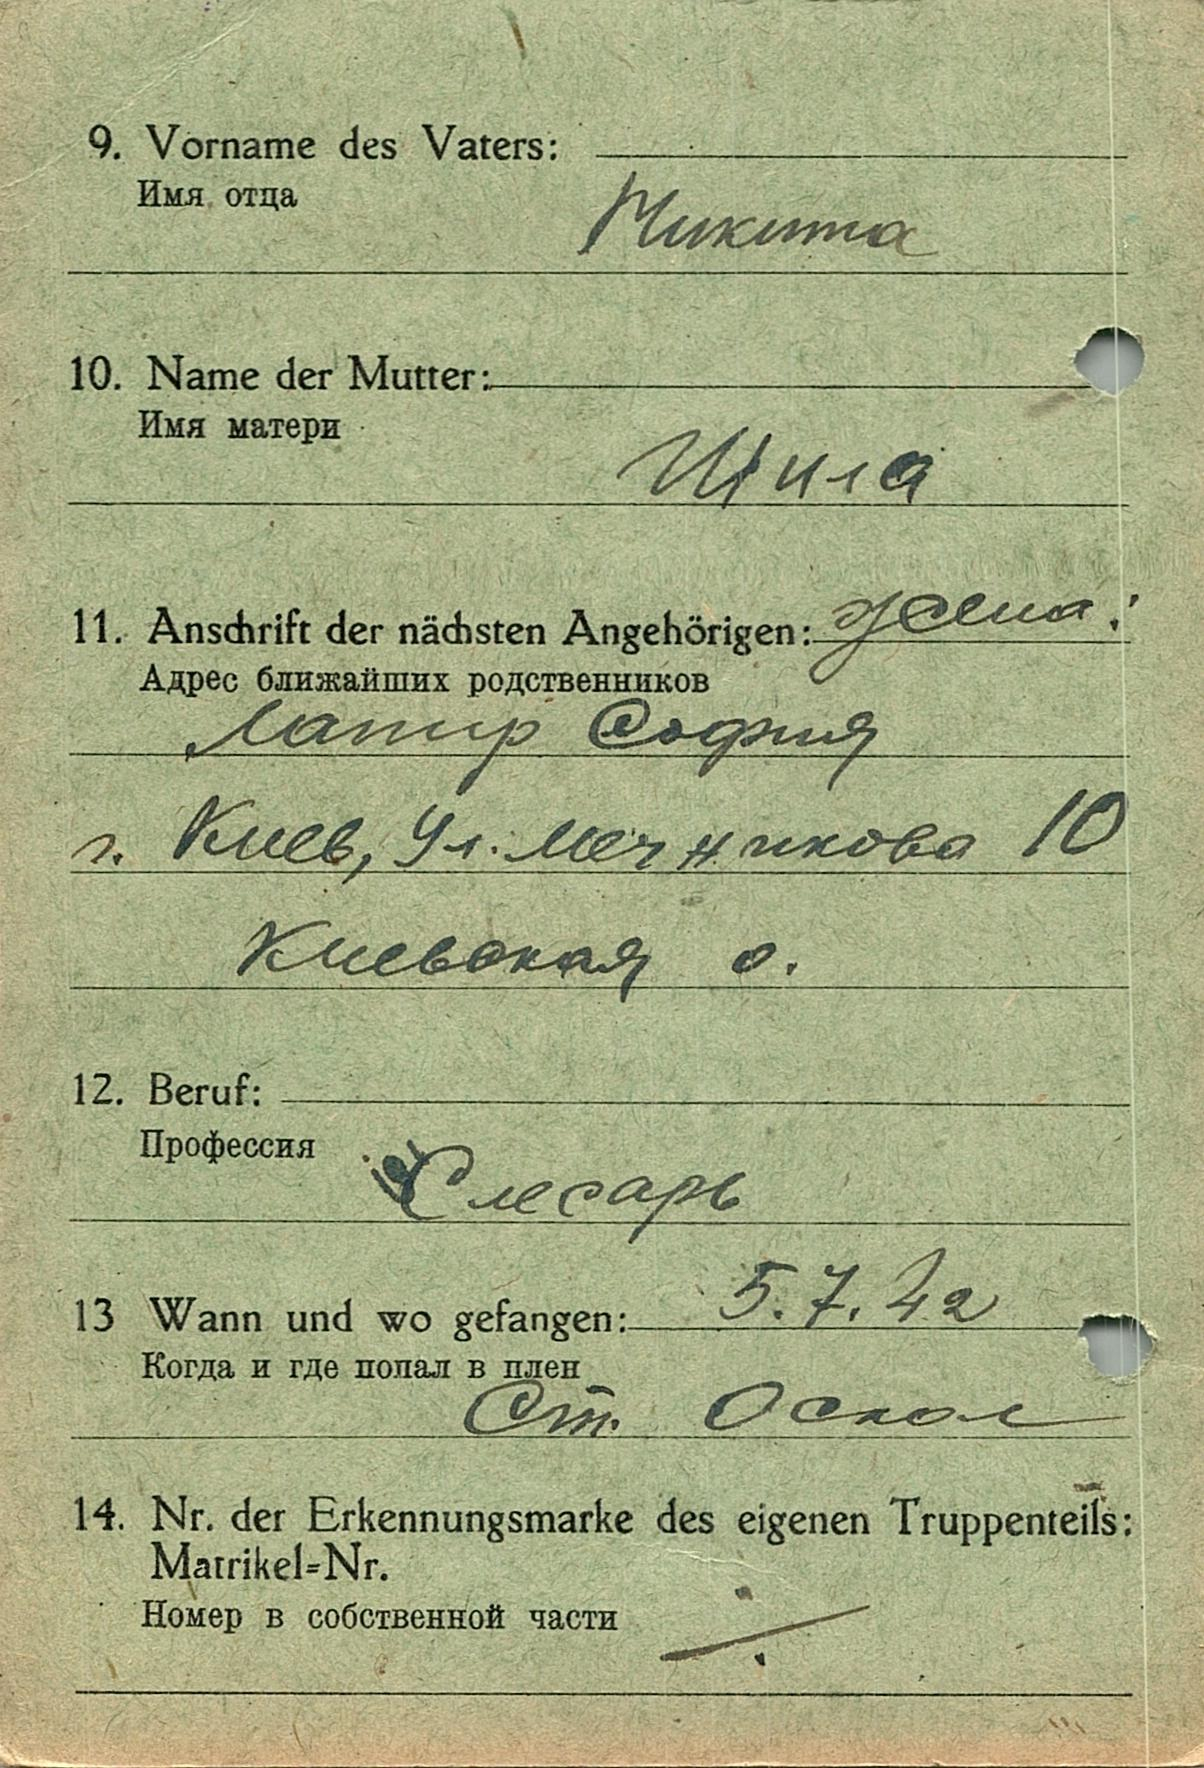 9. Vorname des Vaters:
Имя отца
Никита
10. Name der Mutter:
Имя матери
Шила
11. Anschrift der nächsten Angehörigen: жена:
Адрес ближайших родственников
Лапир София
г. Киев, ул. Мечникова 10
Киевская о.
12. Beruf:
Профессия
Слесарь
13 Wann und wo gefangen: 5.7.42
Когда и где попал в плен
Ст. Оскол
14. Nr. der Erkennungsmarke des eigenen Truppenteils:
Matrikel=Nr.
Номер в собственной части